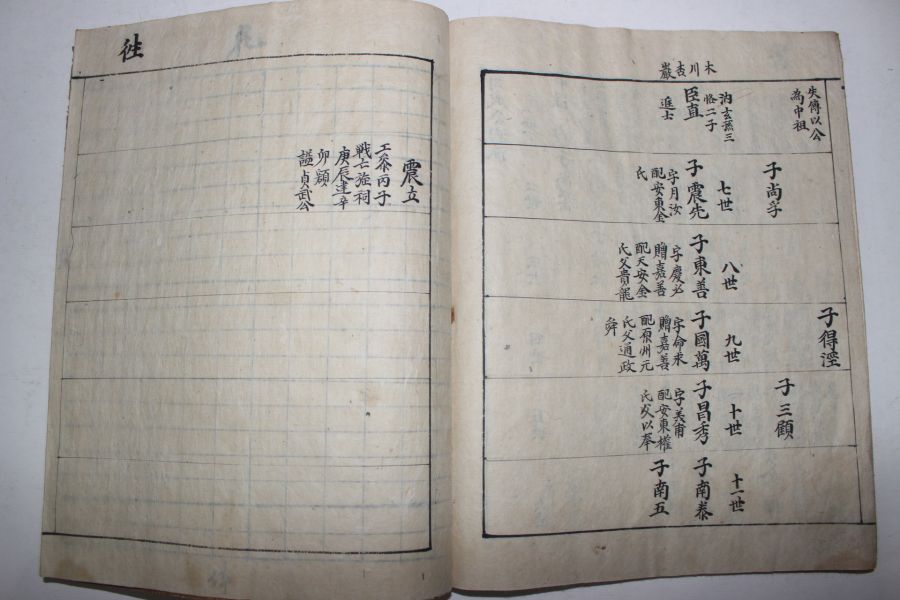 木川杏巖
失傳以公
為中祖
泊玄孫三
恪二子
臣直
進士
子尚孚
七世
子震先
字月汝
配安東金
氏
八世
子東善
字慶必
贈嘉善
配天安金
氏父貴龍
子得溼
九世
子國萬
字命來
贈嘉善
配原州元
氏父通政
舜
子三顧
十世
子昌秀
字美甫
配安東權
氏父以奉
十一世
子南泰
子南五
徃
震立
工參丙子
戰亡旌祠
庚辰建辛
卯額
謚貞武公